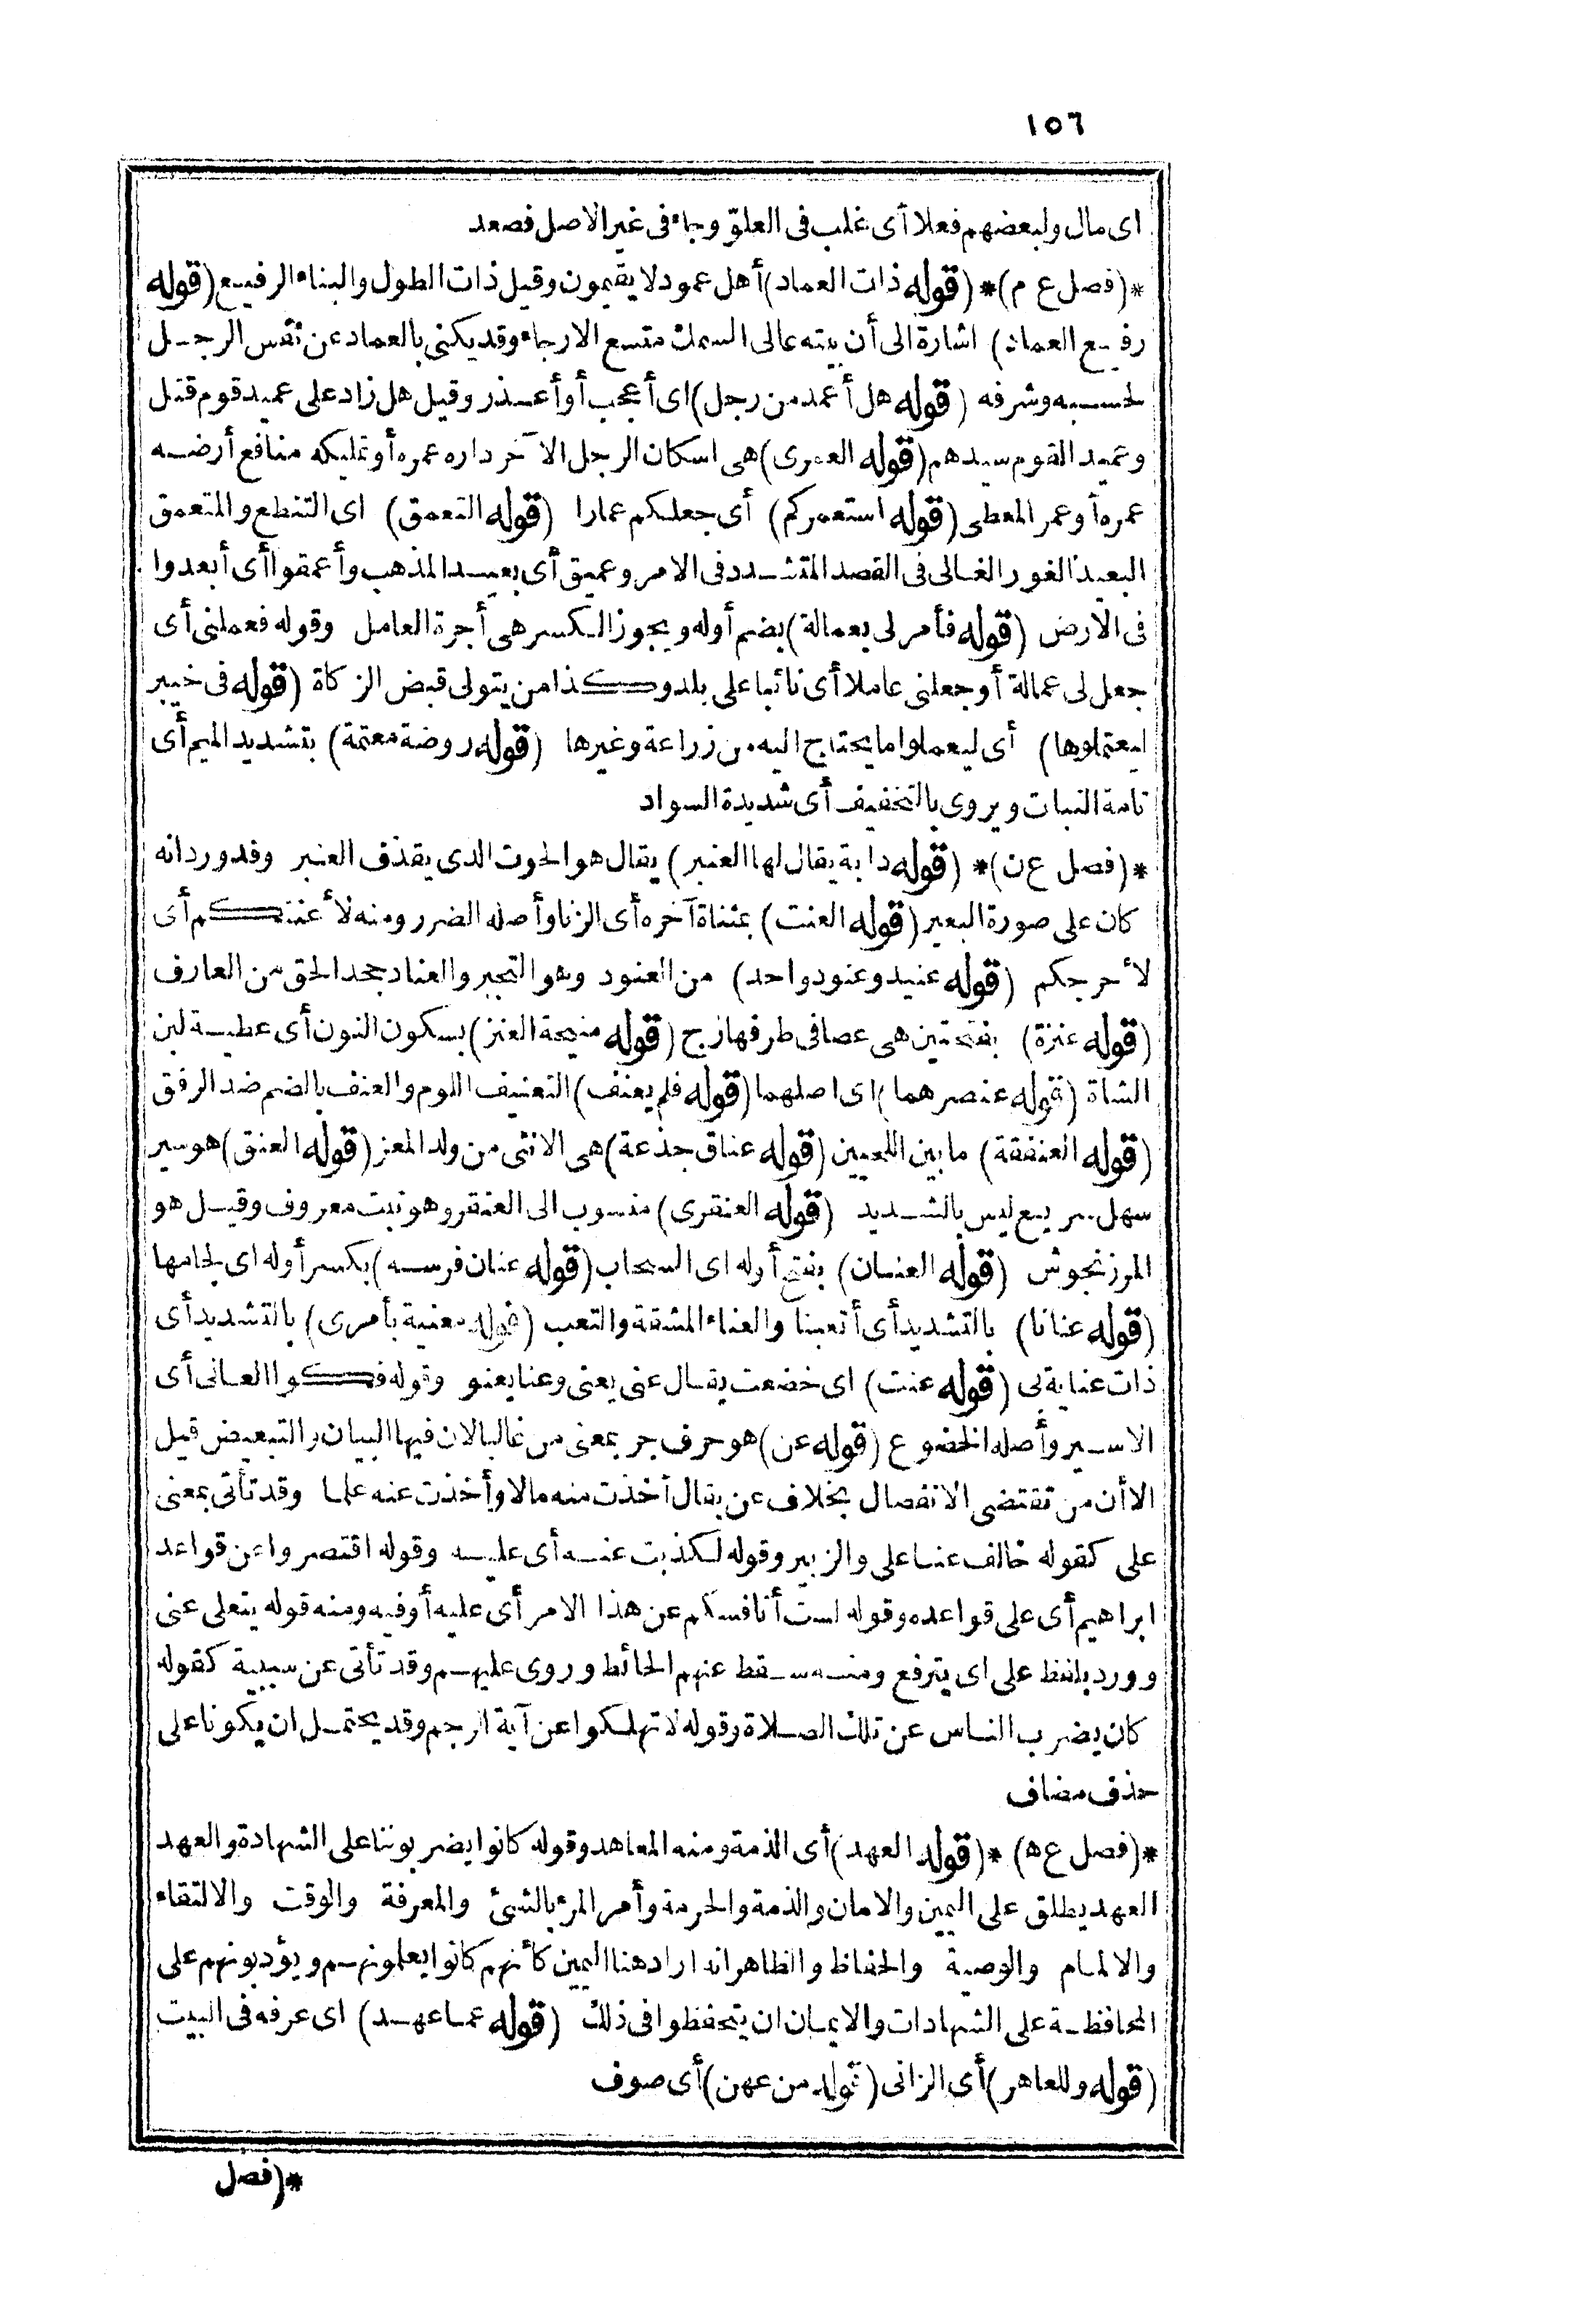 ١٥٦
اى مال ولبعضهم فعلا أى غلب فى العلوّ وجاء فى غير الاصل فصعد
*(فصل ع م)* (قوله ذات العماد) أهل عمود لا يقيمون وقيل ذات الطول والبناء الرفيع (قوله
رفيع العماد) اشارة الى أن بيته عالى السمك متسع الارجاء وقد يكنى بالعماد عن نفس الرجل
لحسبه وشرفه (قوله هل أعمد من رجل) اى أعجب أو أعذر وقيل هل زاد على عميد قوم قتل
وعميد القوم سيدهم (قوله العمرى) هى اسكان الرجل الآخر داره عمره أو تمليكه منافع أرضه
عمره أو عمر المعطى (قوله استعمركم) أى جعلكم عمارا (قوله التعمق) اى التنطع والمتعمق
البعيد الغور الغالى فى القصد المتشدد فى الامر وعميق أى بعيد المذهب وأعمقوا أى أبعدوا
فى الارض (قوله فأمر لى بعمالة) بضم أوله ويجوز الكسر هى أجرة العامل وقوله فعملنى أى
جعل لى عمالة أو جعلنى عاملا أى نائبا على بلد وكذا من يتولى قبض الزكاة (قوله فى خيبر
ليعتملوها) أى ليعملوا ما يحتاج اليه من زراعة وغيرها (قوله روضة معتمة) بتشديد الميم أى
تامة النبات ويروى بالتخفيف أى شديدة السواد
*(فصل ع ن)* (قوله دابة يقال لها العنبر) يقال هو الحوت الذى يقذف العنبر وقد ورد انه
كان على صورة البعير (قوله العنت) بمثناة آخره أى الزنا وأصله الضرر ومنه لأعنتكم أى
لأحرجكم (قوله عنيد وعنود واحد) من العنود وهو التجبر والعناد جحد الحق من العارف
(قوله عنزة) بفتحتين هى عصا فى طرفها زج (قوله منيحة العنز) بسكون النون أى عطية لبن
الشاة (قوله عنصرهما) اى اصلهما (قوله فلم يعنف) التعنيف اللوم والعنف بالضم ضد الرفق
(قوله العنفقة) ما بين اللحيين (قوله عناق جذعة) هى الانثى من ولد المعز (قوله العنق) هو سير
سهل سريع ليس بالشديد (قوله العنقرى) منسوب الى العنقر وهو نبت معروف وقيل هو
المرزنجوش (قوله العنان) بفتح أوله اى السحاب (قوله عنان فرسه) بكسر أوله اى لجامها
(قوله عنانا) بالتشديد أى أتعبنا والعناء المشقة والتعب (قوله معنية بأمرى) بالتشديد أى
ذات عناية بى (قوله عنت) اى خضعت يقال عنى يعنى وعنا يعنو وقوله فكوا العانى أى
الاسير وأصله الخضوع (قوله عن) هو حرف جر بمعنى من غالبا لان فيها البيان والتبعيض قيل
الا أن من تقتضى الانفصال بخلاف عن يقال أخذت منه مالا وأخذت عنه علما وقد تأتى بمعنى
على كقوله خالف عنا على والزبير وقوله لكذبت عنه أى عليه وقوله اقتصروا عن قواعد
ابراهيم أى على قواعده وقوله لست أنافسكم عن هذا الامر أى عليه أو فيه ومنه قوله يتعلى عنى
وورد بلفظ على اى يترفع ومنه سقط عنهم الحائط وروى عليهم وقد تأتى عن سببية كقوله
كان يضرب الناس عن تلك الصلاة وقوله لا تهلكوا عن آية الرجم وقد يحتمل ان يكونا على
حذف مضاف
*(فصل ع ه) *(قوله العهد) أى الذمة ومنه المعاهد وقوله كانوا يضربوننا على الشهادة والعهد
العهد يطلق على اليمين والامان والذمة والحرمة وأمر المرء بالشئ والمعرفة والوقت والالتقاء
والالمام والوصية والحفاظ والظاهر انه اراد هنا اليمين كأنهم كانوا يعلمونهم ويؤدبونهم على
المحافظة على الشهادات والايمان ان يتحفظوا فى ذلك (قوله عما عهد) اى عرفه فى البيت
(قوله وللعاهر) أى الزانى (قوله من عهن) أى صوف
*(فصل